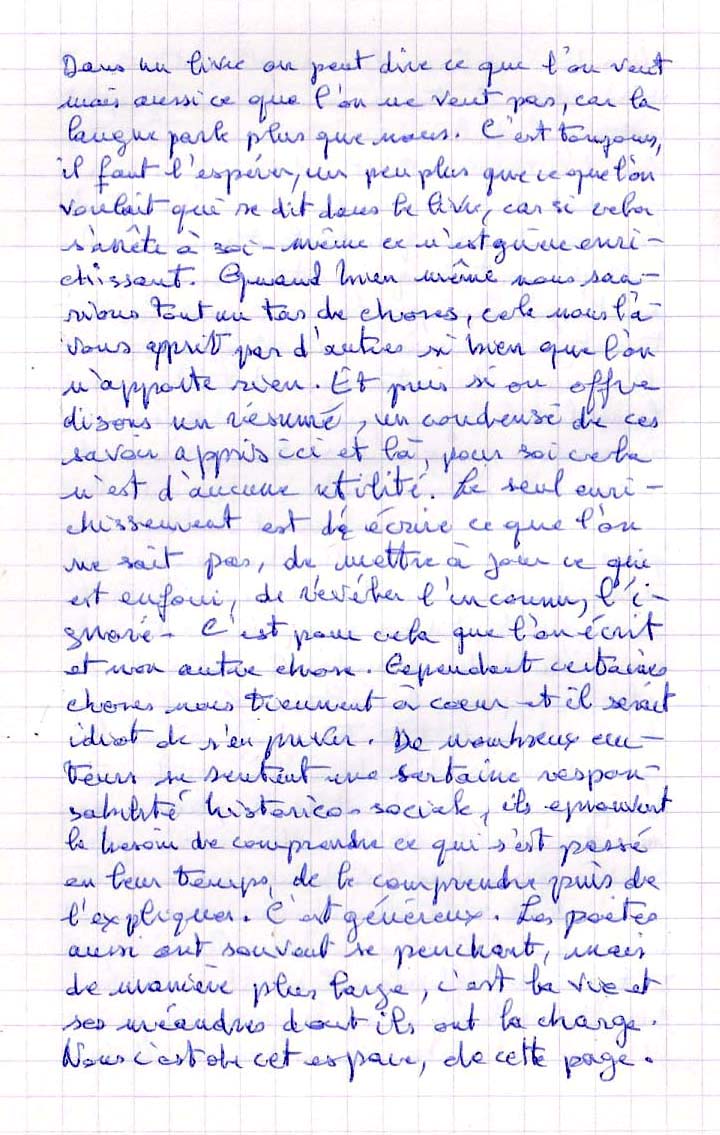 Dans un livre on peut dire ce que l'on veut
mais aussi ce que l'on ne veut pas, car la
langue parle plus que nous. C'est toujours,
il faut l'espérer, un peu plus que ce que l'on
voulait qui se dit dans le livre, car si cela
s'arrête à soi-même ce n'est guère enri-
chissant. Quand bien même nous sau-
rions tout un tas de choses, cela nous l'a-
vons apprit par d'autres si bien que l'on
n'apporte rien. Et puis si on offre
disons un résumé, un condensé de ces
savoir appris ici et là, pour soi cela
n'est d'aucune utilité. Le seul enri-
chissement est de écrire ce que l'on
ne sait pas, de mettre à jour ce qui
est enfoui, de révéler l'inconnu, l'i-
gnoré. C'est pour cela que l'on écrit
et non autre chose. Cependant certaines
choses nous tiennent à coeur et il serait
idiot de s'en priver. De nombreux au-
teurs se sentent une certaine respon-
sabilité historico-sociale, ils éprouvent
le besoin de comprendre ce qui s'est passé
en leur temps, de le comprendre puis de
l'expliquer. C'est généreux. Les poètes
aussi ont souvent ce penchant, mais
de manière plus large, c'est la vie et
ses méandres dont ils ont la charge.
Nous c'est de cet espace, de cette page.